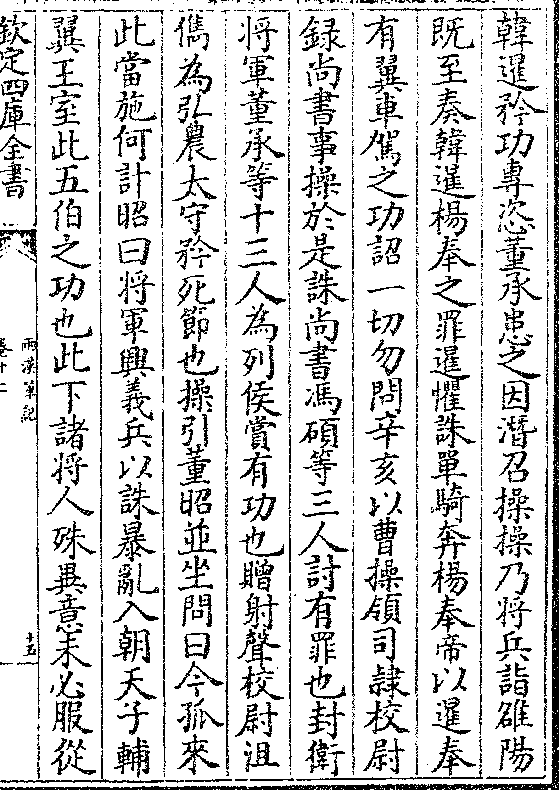 韓暹矜功專恣董承患之因潛召操操乃將兵詣雒陽
既至奏韓暹楊奉之罪暹懼誅單騎奔楊奉帝以暹奉
有翼車駕之功詔一切勿問辛亥以曹操領司隷校尉
録尚書事操於是誅尚書馮碩等三人討有罪也封衛
將軍董承等十三人為列侯賞有功也贈射聲校尉沮
儁為弘農太守矜死節也操引董昭並坐問曰今孤來
此當施何計昭曰將軍興義兵以誅暴亂入朝天子輔
翼王室此五伯之功也此下諸將人殊異意未必服從
欽定四庫全書
兩漢筆記
卷十二
十五